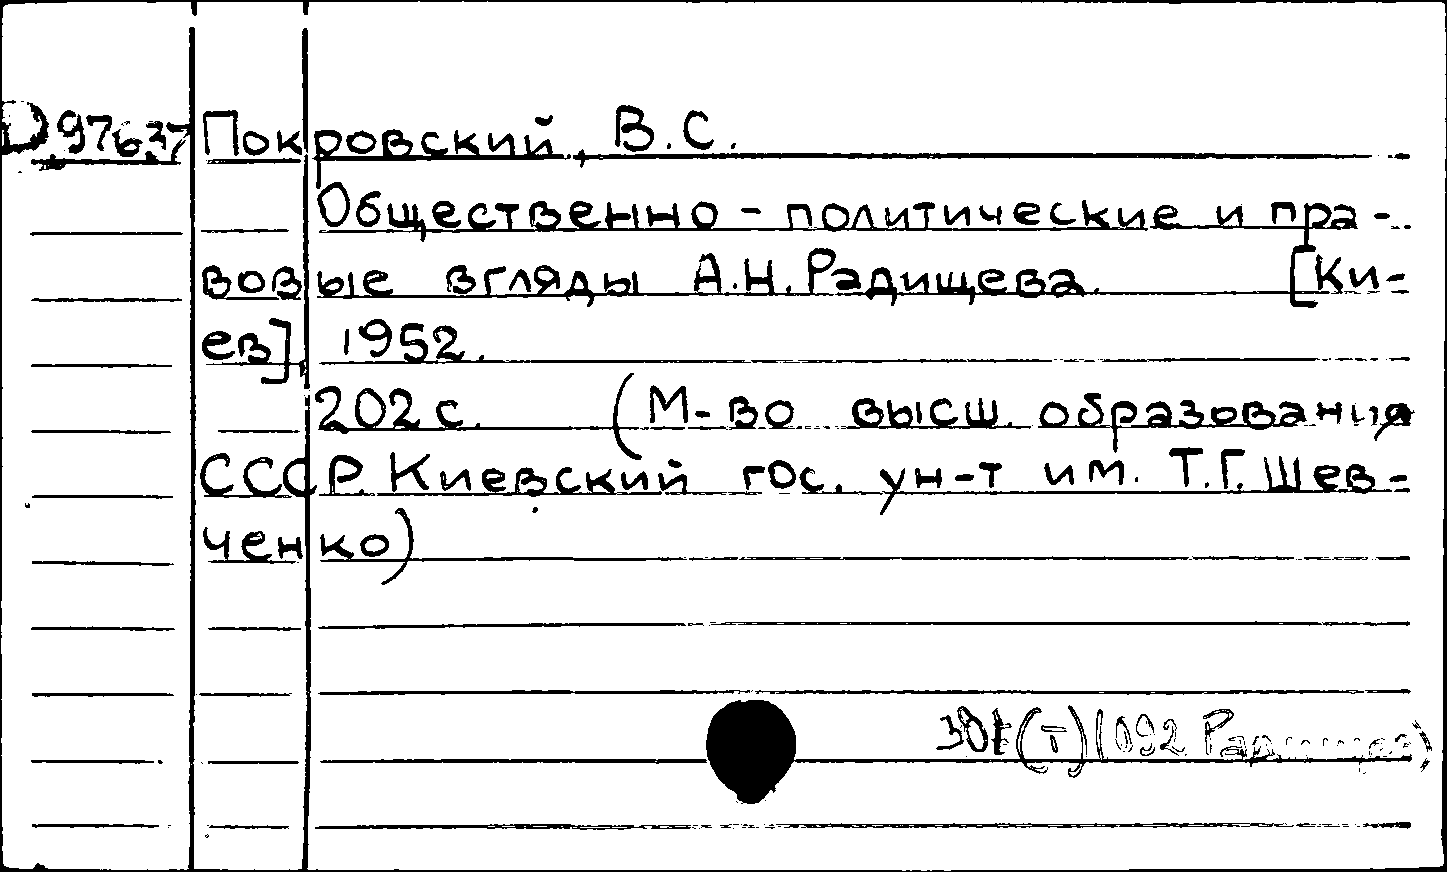 D 97637 Покровский, В.С.
Общественно-политические и пра-
вовые взгляды А.Н.Радищева. [Ки-
ев], 1952.
202 с. (М-во высш. образования
СССР. Киевский гос. ун-т им. Т.Г. Шев-
ченко)
(Т)(092 Радищев)